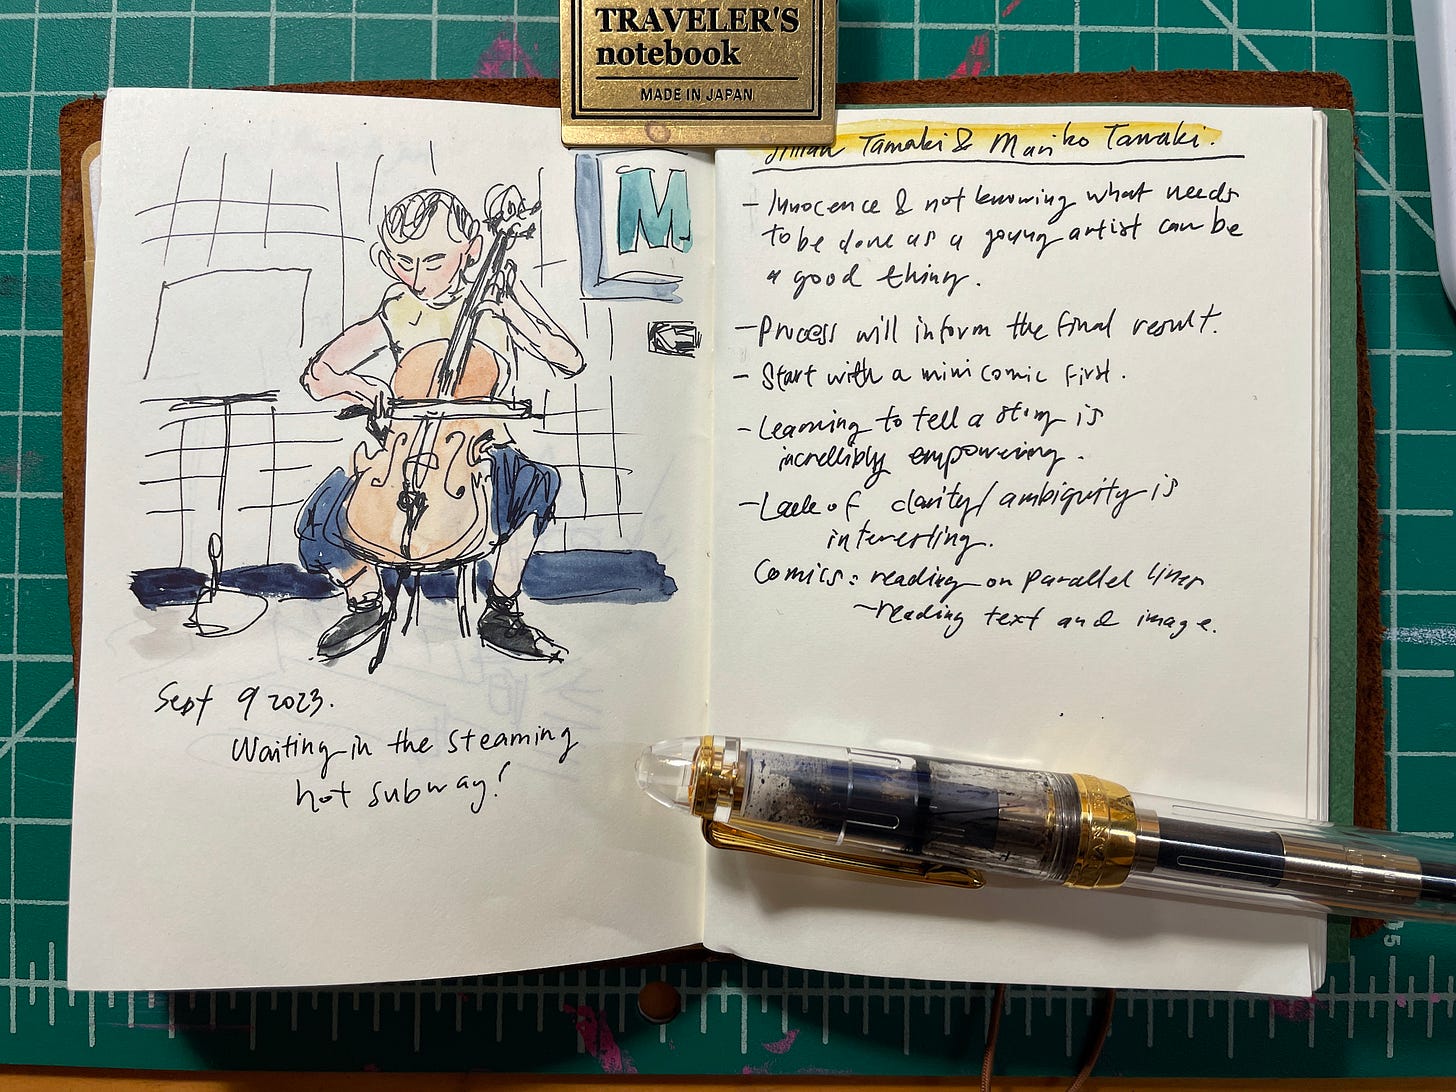 TRAVELER'S
notebook
MADE IN JAPAN
M
Sept 9 2023.
Waiting in the steaming
hot subway!
Jillian Tamaki & Mariko Tamaki.
- Innocence & not knowing what needs
to be done as a young artist can be
a good thing.
- Process will inform the final result.
- Start with a mini comic first.
- Learning to tell a story is
incredibly empowering.
- Lack of clarity/ambiguity is
interesting.
Comics: reading on parallel lines
- reading text and image.